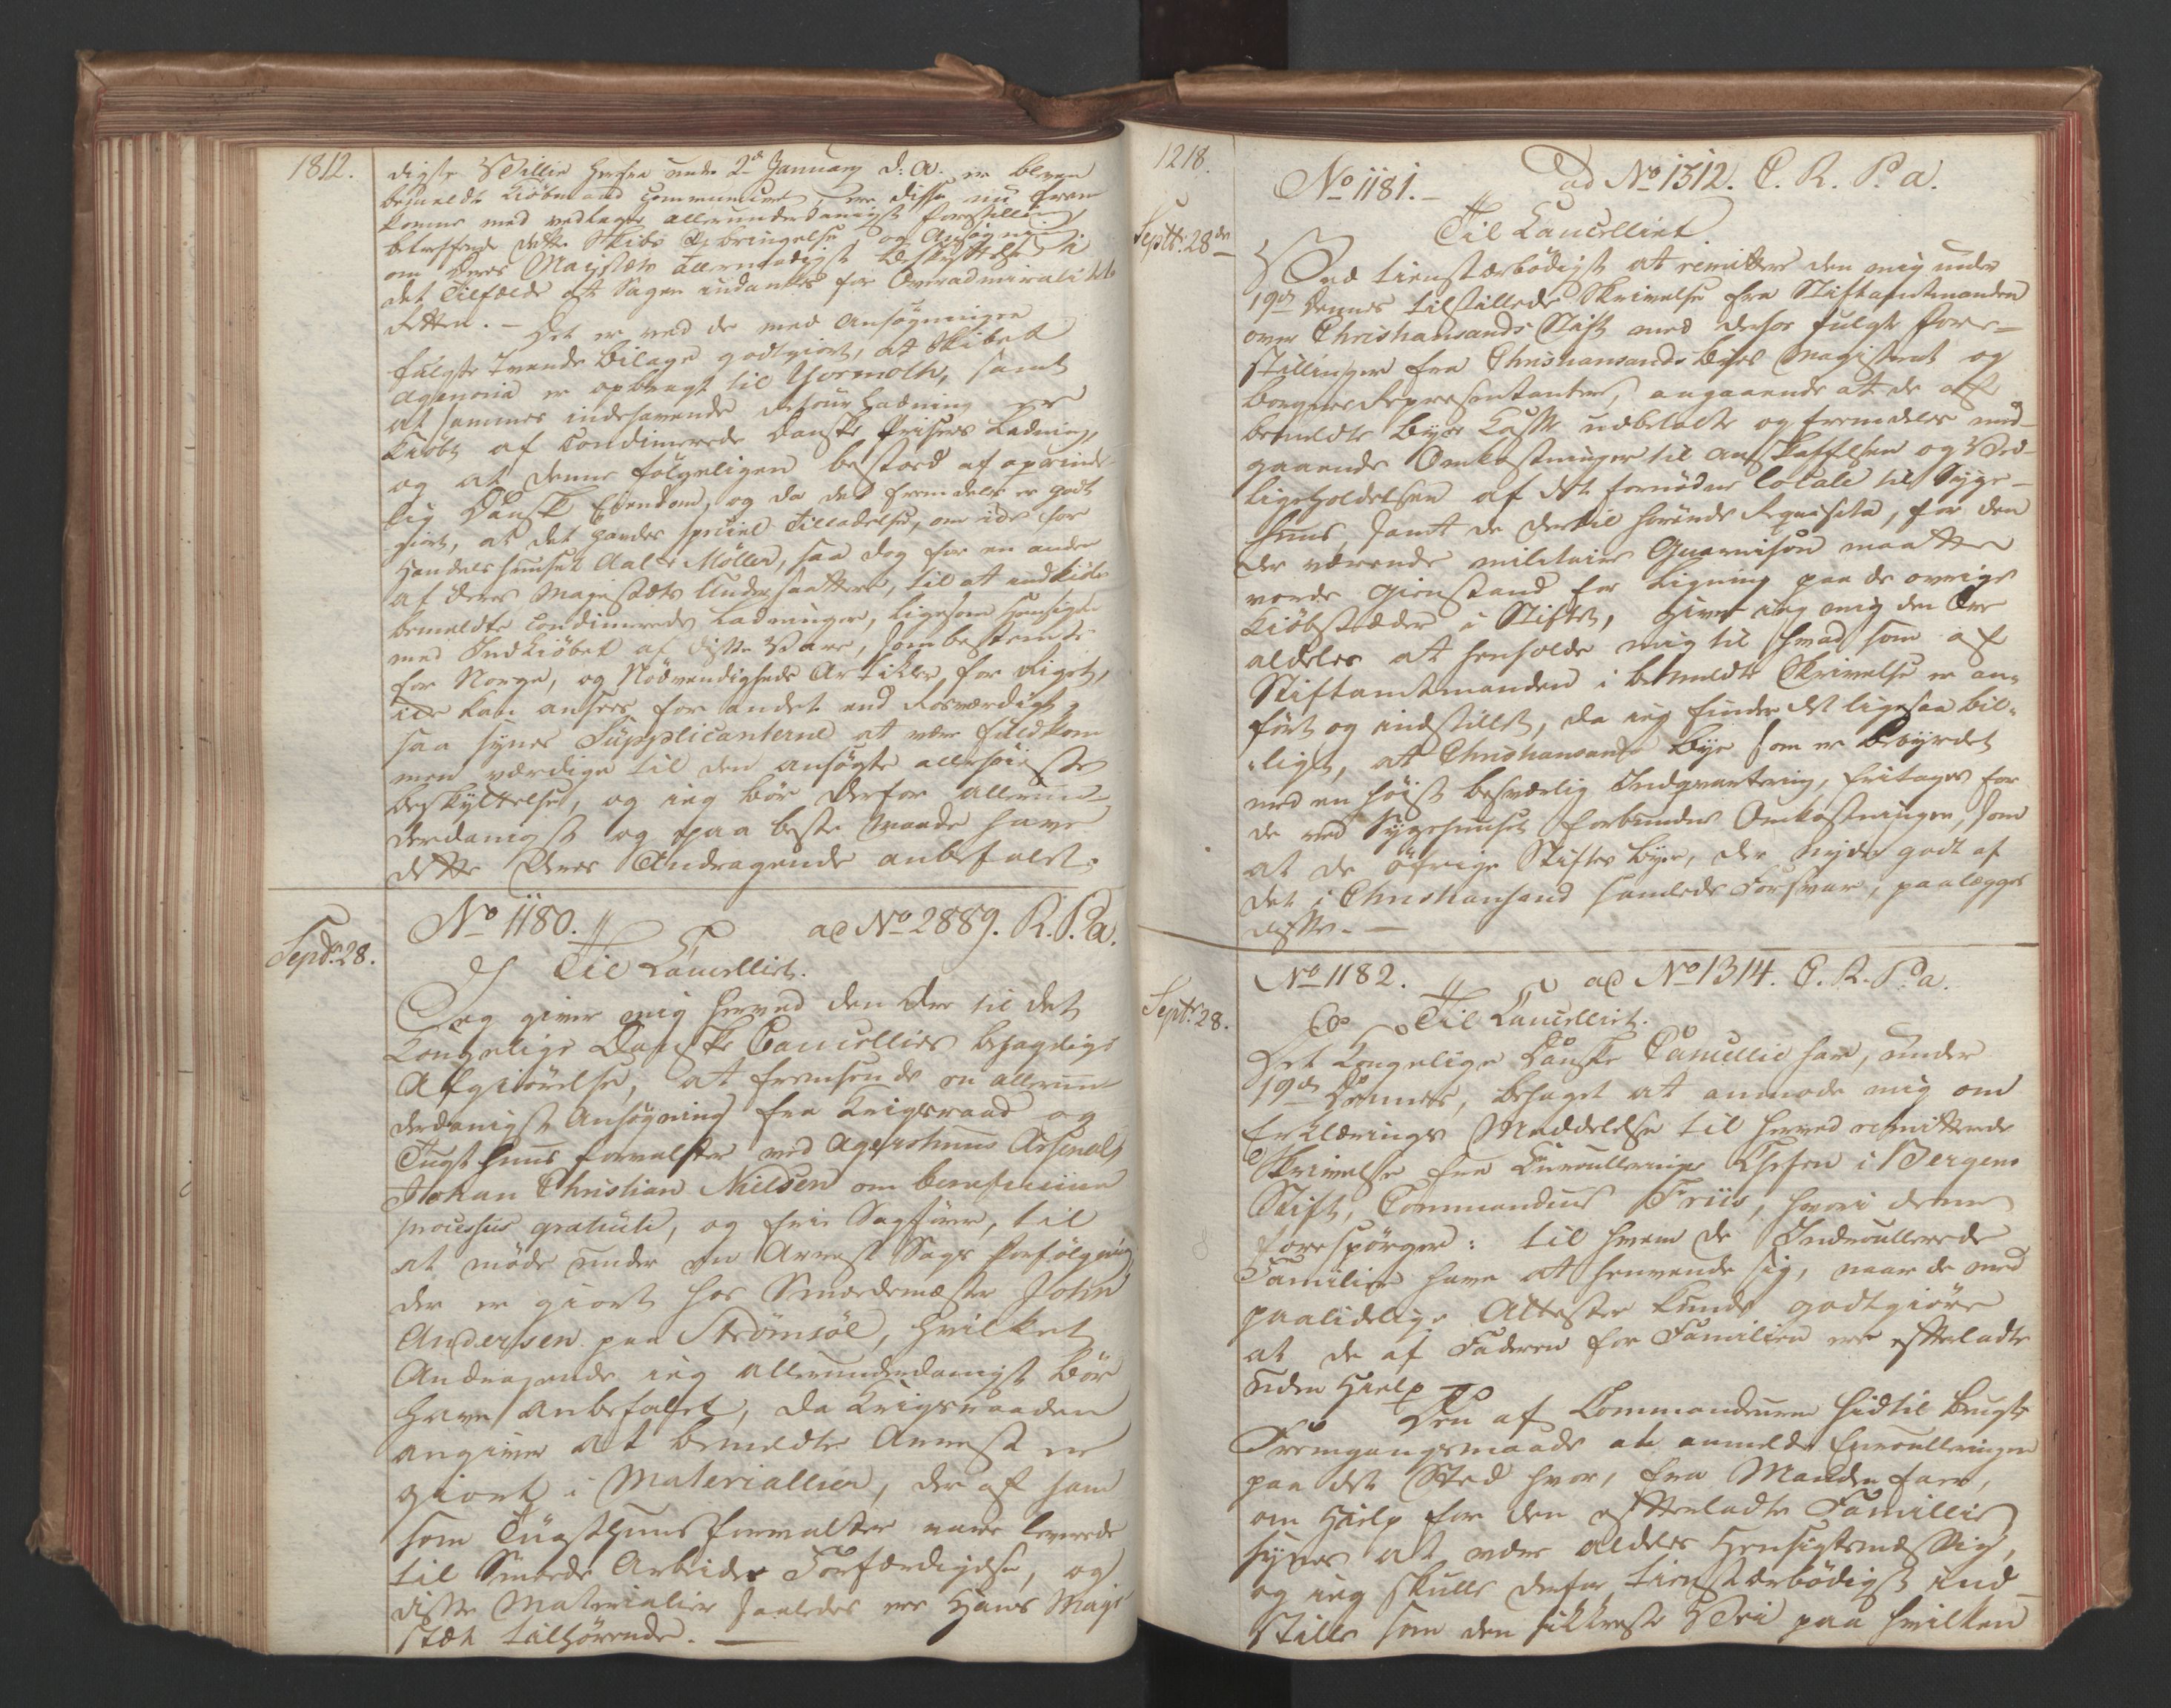 1812.
digste Villie herfra under 2den January d: A. er bleven
bemeldte Kiöbmænd communiceret, ere disse nu frem
komne med vedlagte allerunderdanigst forestilling
betræffende dette Skibs Opbringelse, og Ansøgning
om Deres Majestæts Allernaadigst Beskyttelse i
det Tilfælde at Sagen indankes for Overadmiralitets
Retten. – Det er ved de med Ansøgningen
fulgte tvende Bilage godtgiort, at Skibet
Agenoria er opbragt til Yarmoth, samt
at sammes indehavende Retour Ladning er
Kiöbt af Condimerede Danske Prisers Ladning,
og at denne følgeligen bestod af oprinde
lig Dansk Eiendom, og da det fremdeles er godt
giort, at det havdes speciel Tilladelse, om ikke for
Handelshuuset Aal & Möller, saa dog for en anden
af Deres Majestæts Undersaattere, til at indkiöbe
bemeldte condimerede Ladninger, ligesom Hensigten
med Indkiöbet af disse Vare, som bestemte
for Norge, og Nödvendigheds Artikler for Riget,
ikke kan ansees for andet end Rosværdigt,
saa synes Supplicanterne at være fuldkom
men værdige til den ansøgte allerhöieste
Beskyttelse, og jeg bör derfor allerun-
derdanigst og paa beste Maade have
dette Deres Andragende anbefalet.
Septbr 28.
No 1180. ad No 2889. R. P. a.
Til Cancelliet.
Jeg giver mig herved den Ære til det
Kongelige Danske Cancellies behagelige
Afgiörelse, at fremsende en allerun
derdanigst Ansøgning fra Krigsraad og
Tugthuusforvalter ved Agershuus Arsenal
Johan Christian Nielsen om beneficium
processus gratuiti, og frie Sagförer, til
at möde under en Arrest Sags Forfölgning
der er giort hos Smedemester John
Andersen paa Strömsöe, hvilket
Andragende jeg allerunderdanigst bör
have anbefalet, da Krigsraaden
angiver at bemeldte Arrest er
giort i Materiallier, der af ham
som Tugthuusforvalter vare leverede
til Smede Arbeides Forfærdigelse, og
disse Materialier saaledes ere Hans Maje
stæt tilhörende. —
1218.
Septbr: 28de
No 1181. – ad No 1312. C. R. P. a.
Til Cancelliet
Ved tienstærbödigst at remittere den mig under
19de dennes tilstillede Skrivelse fra Stiftamtmanden
over Christiansands Stift med derhos fulgte fore-
stillinger fra Christiansands Byes Magistrat og
Borger Repræsentanter, angaaende at de af
bemeldte Byes Casse udbetalte og fremdeles med-
gaaende Omkostninger til Anskaffelsen og Ved-
ligeholdelsen af det fornödne Locale til Syge-
huus, samt de dertil hørende Requisita, for den
der værende militaire Guarnison maatte
vorde Gienstand for Ligning paa de övrige
Kiöbstæder i Stiftet, giver jeg mig den Ære
aldeles at henholde mig til hvad som af
Stiftamtmanden i bemeldte Skrivelse er an-
fört og indstillet, da jeg finder det ligesaa bil-
ligt, at Christiansands Bye som er bebyrdet
med en höist besværlig Indqvartering, fritages for
de ved Sygehuuset forbundne Omkostninger, som
at de övrige Stiftes Byer, der nyde godt af
det i Christiansand samlede Forsvar, paalægges
disse. —
Septbr 28.
No 1182. ad No 1314. C. R. P. a.
Til Cancelliet.
Det Kongelige Danske Cancellie har, under
19de dennes, behaget at anmode mig om
Erklærings Meddelelse til herved remitterede
Skrivelse fra Enroullerings Chefen i Bergens
Stift, Commandeur Friis, hvori denne
forespörger: til hvem de Indroullerede
Familier have at henvende sig, naar de med
paalidelige Attester kunde godtgiöre
at de af Faderen for Familien ere efterladte
uden Hielp –
Den af Commandeuren hidtil brugte
Fremgangsmaade at anmelde Enroulleringen
paa det Sted hvor, fra Manden foer,
om Hielp for den efterladte Famillie
synes at være aldeles Hensigtsmæssig,
og jeg skulle derfor tienstærbödigst ind-
stille som den sikkreste Vei paa hvilken